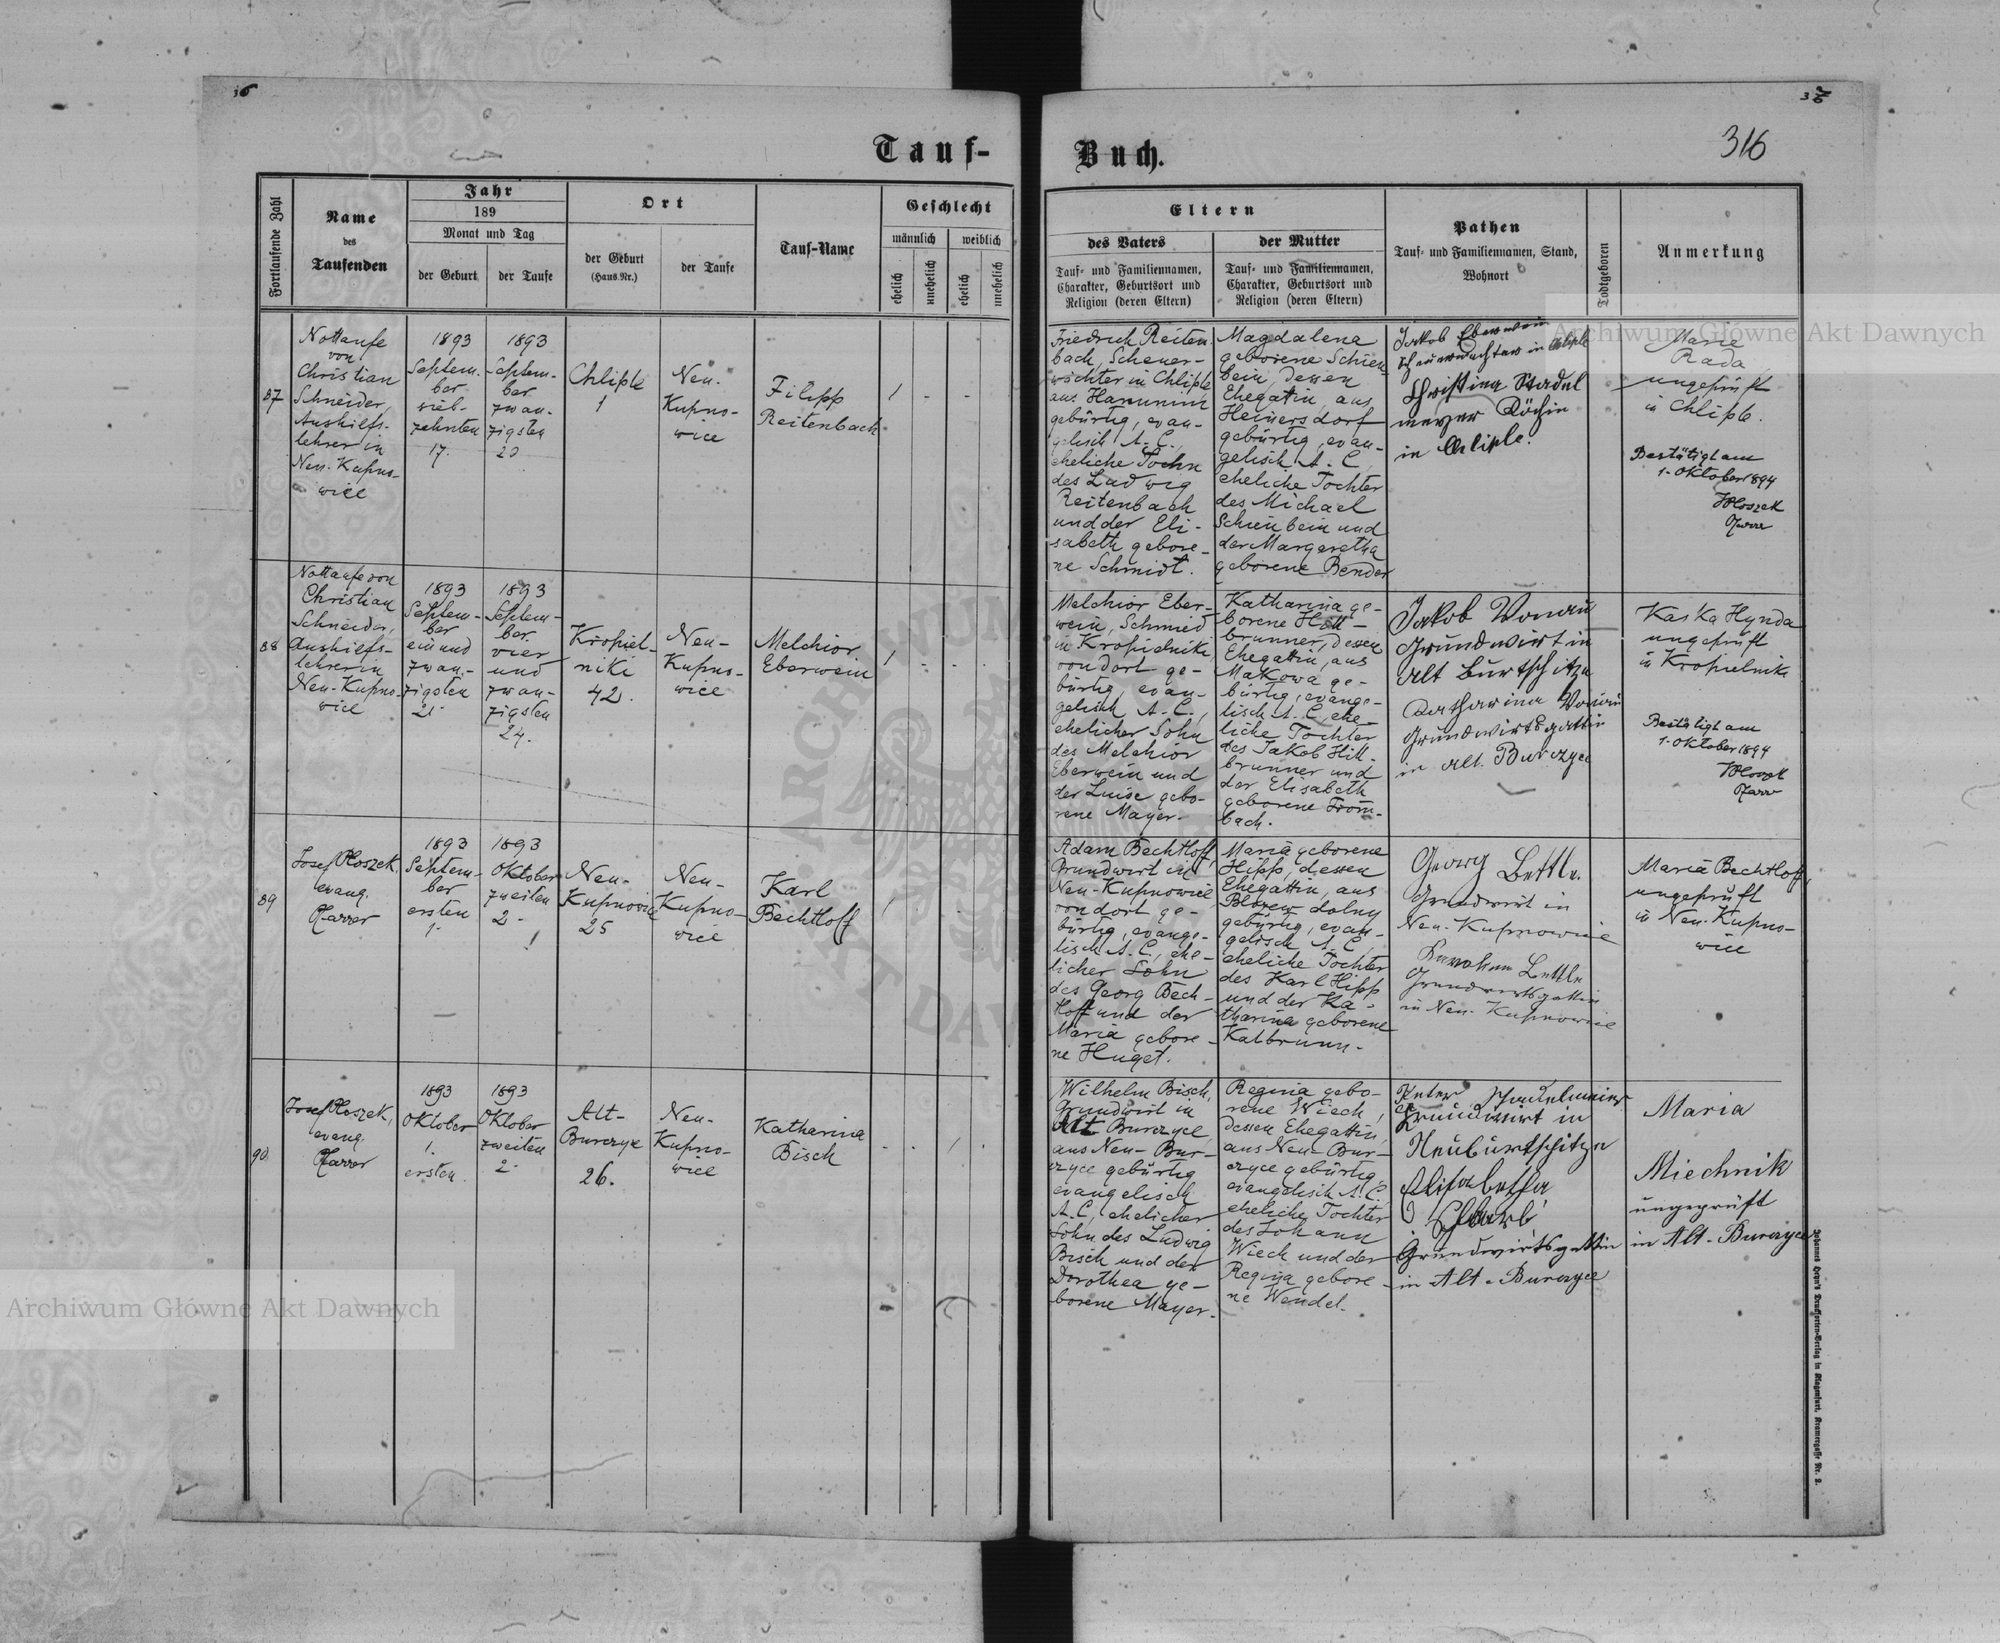 36
36
316
Tauf-
Buch.
Fortlaufende Zahl
Name
des
Taufenden
Jahr
189
Monat und Tag
der Geburt
der Taufe
Ort
der Geburt
(Haus-Nr.)
der Taufe
Tauf-Name
Geschlecht
männlich
weiblich
ehelich
unehelich
ehelich
unehelich
Eltern
des Vaters
Tauf- und Familiennamen,
Charakter, Geburtsort und
Religion (deren Eltern)
der Mutter
Tauf- und Familiennamen,
Charakter, Geburtsort und
Religion (deren Eltern)
Pathen
Tauf- und Familiennamen, Stand,
Wohnort
Todtgeboren
Anmerkung
87
Nottaufe
von
Christian
Schneider
Aushilfs-
lehrer in
Neu-Kupno-
wice
1893
Septem-
ber
sieb-
zehnten
17.
1893
Septem-
ber
zwan-
zigsten
20
Chliple
1
Neu-
Kupno-
wice
Filipp
Reitenbach
1
-
-
Friedrich Reiten
bach, Scheuer-
wächter in Chliple
aus Hanunin
gebürtig, evan-
gelisch A.C.,
eheliche Sohn
des Ludwig
Reitenbach
und der Eli-
sabeth gebore-
ne Schmidt.
Magdalena
geborene Schien
bein, dessen
Ehegattin, aus
Heinersdorf
gebürtig, evan-
gelisch A.C.
eheliche Tochter
des Michael
Schienbein und
der Margaretha
geborene Bender
Jakob Eberwein
Scheuerwächter in Chliple
Christina Stadel
meyer Köchin
in Chliple.
Marie
Rada
ungeprüft
in Chliple.
Bestätigt am
1. Oktober 1894
Hloszek
Pfarrer
88
Nottaufe von
Christian
Schneider,
Aushilfs-
lehrer in
Neu-Kupno-
wice
1893
Septem-
ber
ein und
zwan-
zigsten
21.
1893
Septem-
ber
vier
und
zwan-
zigsten
24.
Kropiel-
niki
42.
Neu-
Kupno-
wice
Melchior
Eberwein
1
-
-
Melchior Eber-
wein, Schmied
in Kropielniki
von dort ge-
bürtig, evan-
gelisch A.C.,
ehelicher Sohn
des Melchior
Eberwein und
der Luise gebo-
rene Mayer.
Katharina ge-
borene Hitt-
brunner, dessen
Ehegattin, aus
Makowa ge-
bürtig, evange-
lisch A.C. ehe-
liche Tochter
des Jakob Hitt-
brunner und
der Elisabeth
geborene From-
bach.
Jakob Vonau
Grundwirt in
Alt Burtschitze
Katharina Vonau
Grundwirtsgattin
in Alt. Burczyce
Kaśka Hynda
ungeprüft
in Kropielniki
Bestätigt am
1. Oktober 1894
Hloszek
Pfarrer
89
Josef Hloszek,
evang.
Pfarrer
1893
Septem-
ber
ersten
1.
1893
Oktober
zweiten
2.
Neu-
Kupnowice
25
Neu-
Kupno-
wice
Karl
Bechtloff
1
-
-
Adam Bechtloff,
Grundwirt in
Neu-Kupnowice
von dort ge-
bürtig, evange-
lisch A.C., ehe-
licher Sohn
des Georg Bech-
tloff und der
Maria gebore-
ne Huget.
Maria geborene
Hipp, dessen
Ehegattin, aus
Błozew dolny
gebürtig, evan-
gelisch A.C.
eheliche Tochter
des Karl Hipp
und der Ka-
tharina geborene
Kalbrunn.
Georg Bettle.
Grundwirt in
Neu-Kupnowice
Karoline Bettle
Grundwirtsgattin
in Neu-Kupnowice
Maria Bechtloff,
ungeprüft
in Neu-Kupno-
wice
90
Josef Hloszek,
evang.
Pfarrer
1893
Oktober
1.
ersten
1893
Oktober
zweiten
2.
Alt-
Burczyce
26.
Neu-
Kupno-
wice
Katharina
Bisch
-
-
1
-
Wilhelm Bisch,
Grundwirt in
Alt Burczyce
aus Neu-Bur-
czyce gebürtig
evangelisch
A.C., ehelicher
Sohn des Ludwig
Bisch und der
Dorothea ge-
borene Mayer.
Regina gebo-
rene Wiech,
dessen Ehegattin,
aus Neu-Bur-
czyce gebürtig
evangelisch A.C.
eheliche Tochter
des Johann
Wiech und der
Regina gebore-
ne Wendel.
Peter Stadelmeier
Grundwirt in
Neuburtschitze
Elisabetha
Grundwirtsgattin
in Alt-Burczyce
Maria
Miechnik
ungeprüft
in Alt-Burczyce
Johannes Heyn's Drucksorten-Verlag in Klagenfurt, Kramergasse Nr. 2.
Archiwum Główne Akt Dawnych
Archiwum Główne Akt Dawnych